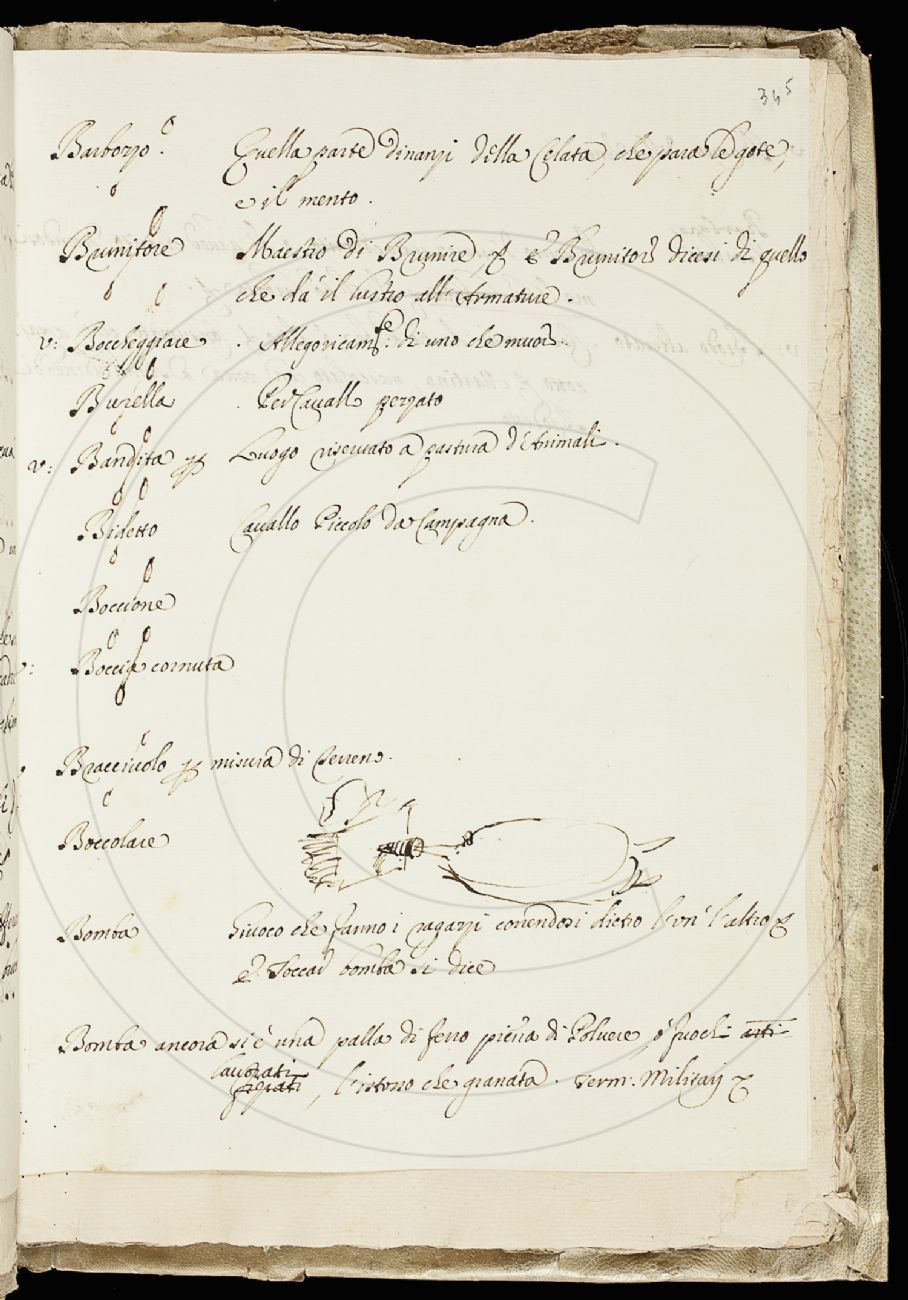 345
Barbozzo. Quella parte dinanzi della Celata, che para le gote,
e il mento.
Brunitore Maestro di Brunire e Brunitore dicesi di quello
che da il lustro all'Armature.
v: Boccheggiare. Allegoricamte: di uno che muore.
Burella. Per Cavallo pezzato
v: Bandita Luogo riservato a pastura d'Animali.
Bidetto Cavallo Piccolo da Campagna.
Boccione
Boccia cornuta
Bracciuolo misura di Terreno.
Boccolare
Bomba Giuoco che fanno i ragazzi correndosi dietro l'un l'altro
e Toccar bomba si dice
Bomba ancora si è una palla di ferro piena di Polvere, o fuochi arti-
lavorati
ficiati, l'istesso che granata. Term: Militar